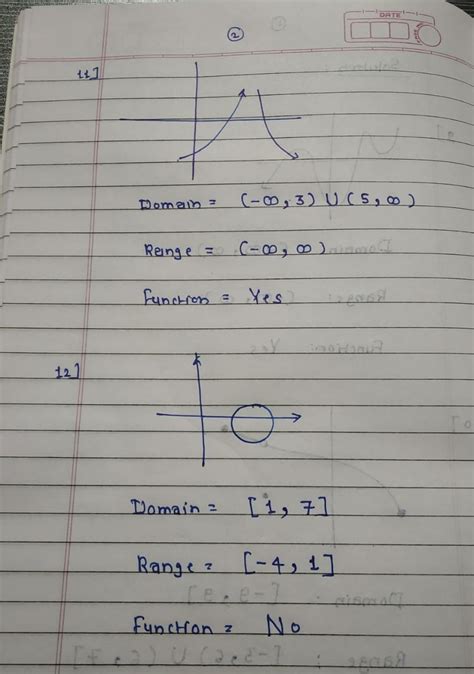 DATE
2
11]
Domain = (-∞, 3) U (5, ∞)
Range = (-∞, ∞)
Function = Yes
12]
Domain = [1, 7]
Range = [-4, 1]
Function = No